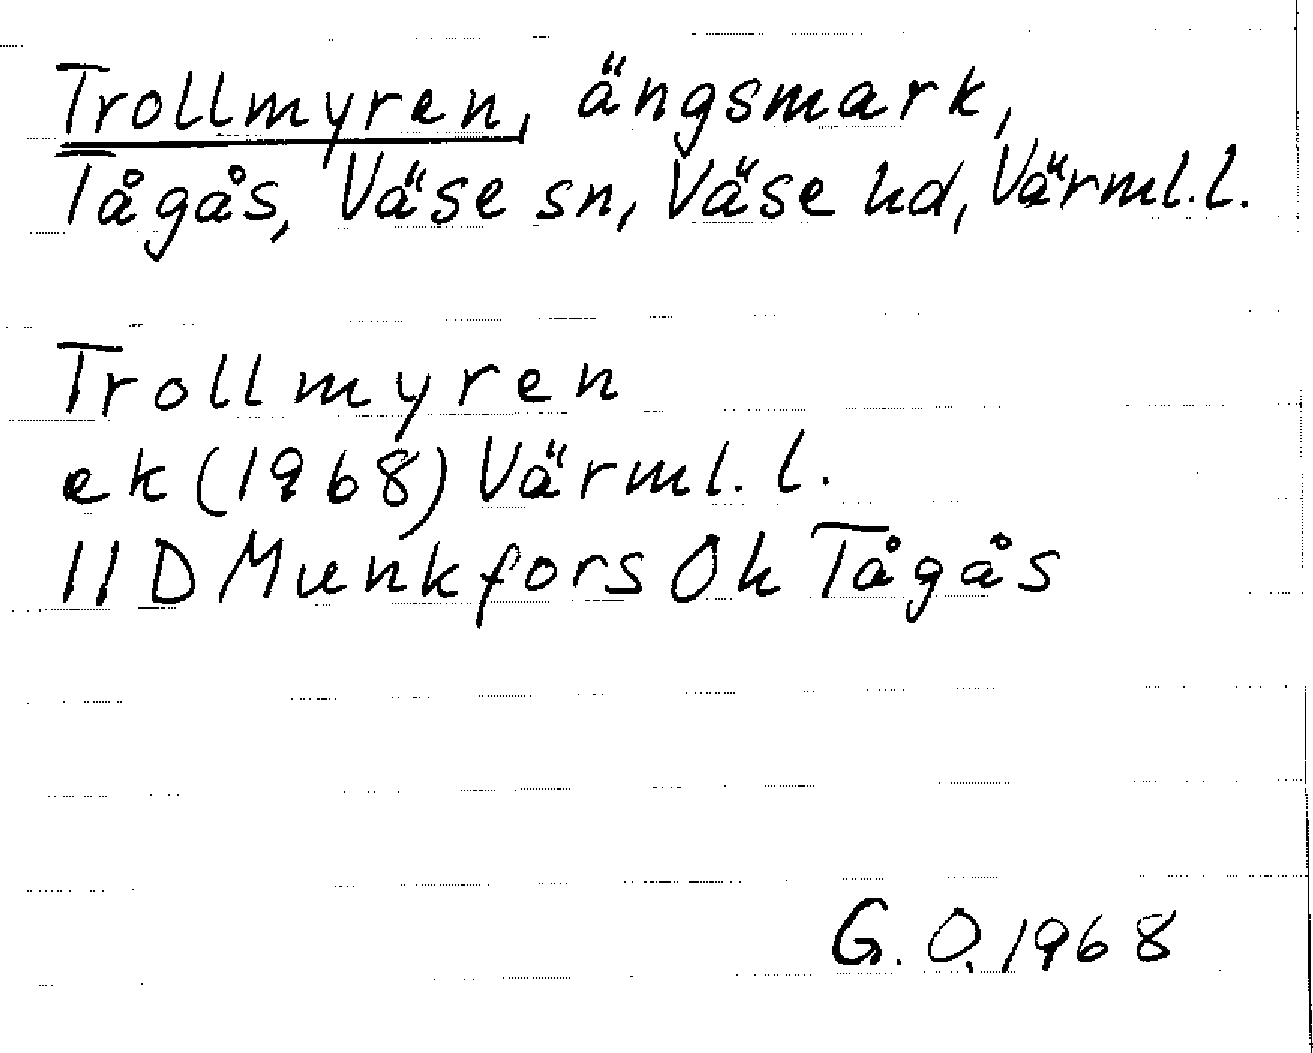 Trollmyren, ängsmark,
Tågås, Väse sn, Väse hd, Värml.l.
Trollmyren
ek (1968) Värml.l.
11D Munkfors 0h Tågås
G.O.1968